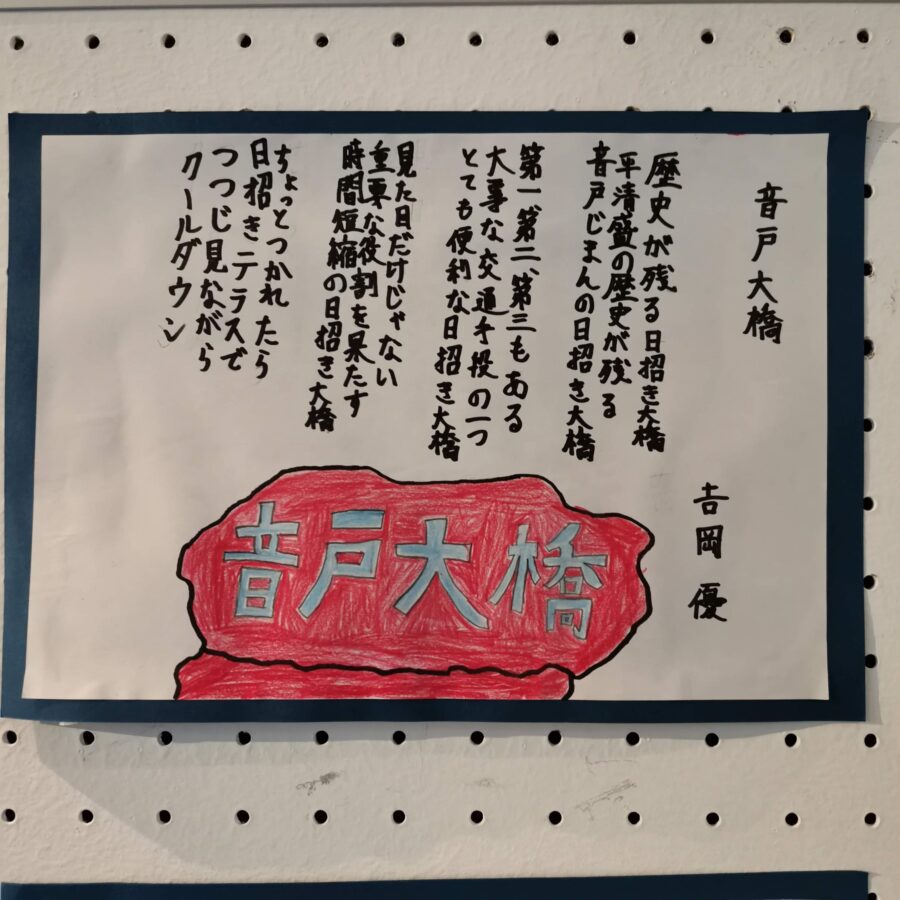 音戸大橋
吉岡優
歴史が残る日招き大橋
平清盛の歴史が残る
音戸じまんの日招き大橋
第一、第二、第三もある
大事な交通手段の一つ
とても便利な日招き大橋
見た日だけじゃない
重要な役割を果たす
時間短縮の日招き大橋
ちょっとつかれたら
日招きテラスで
つつじ見ながら
クールダウン
音戸大橋